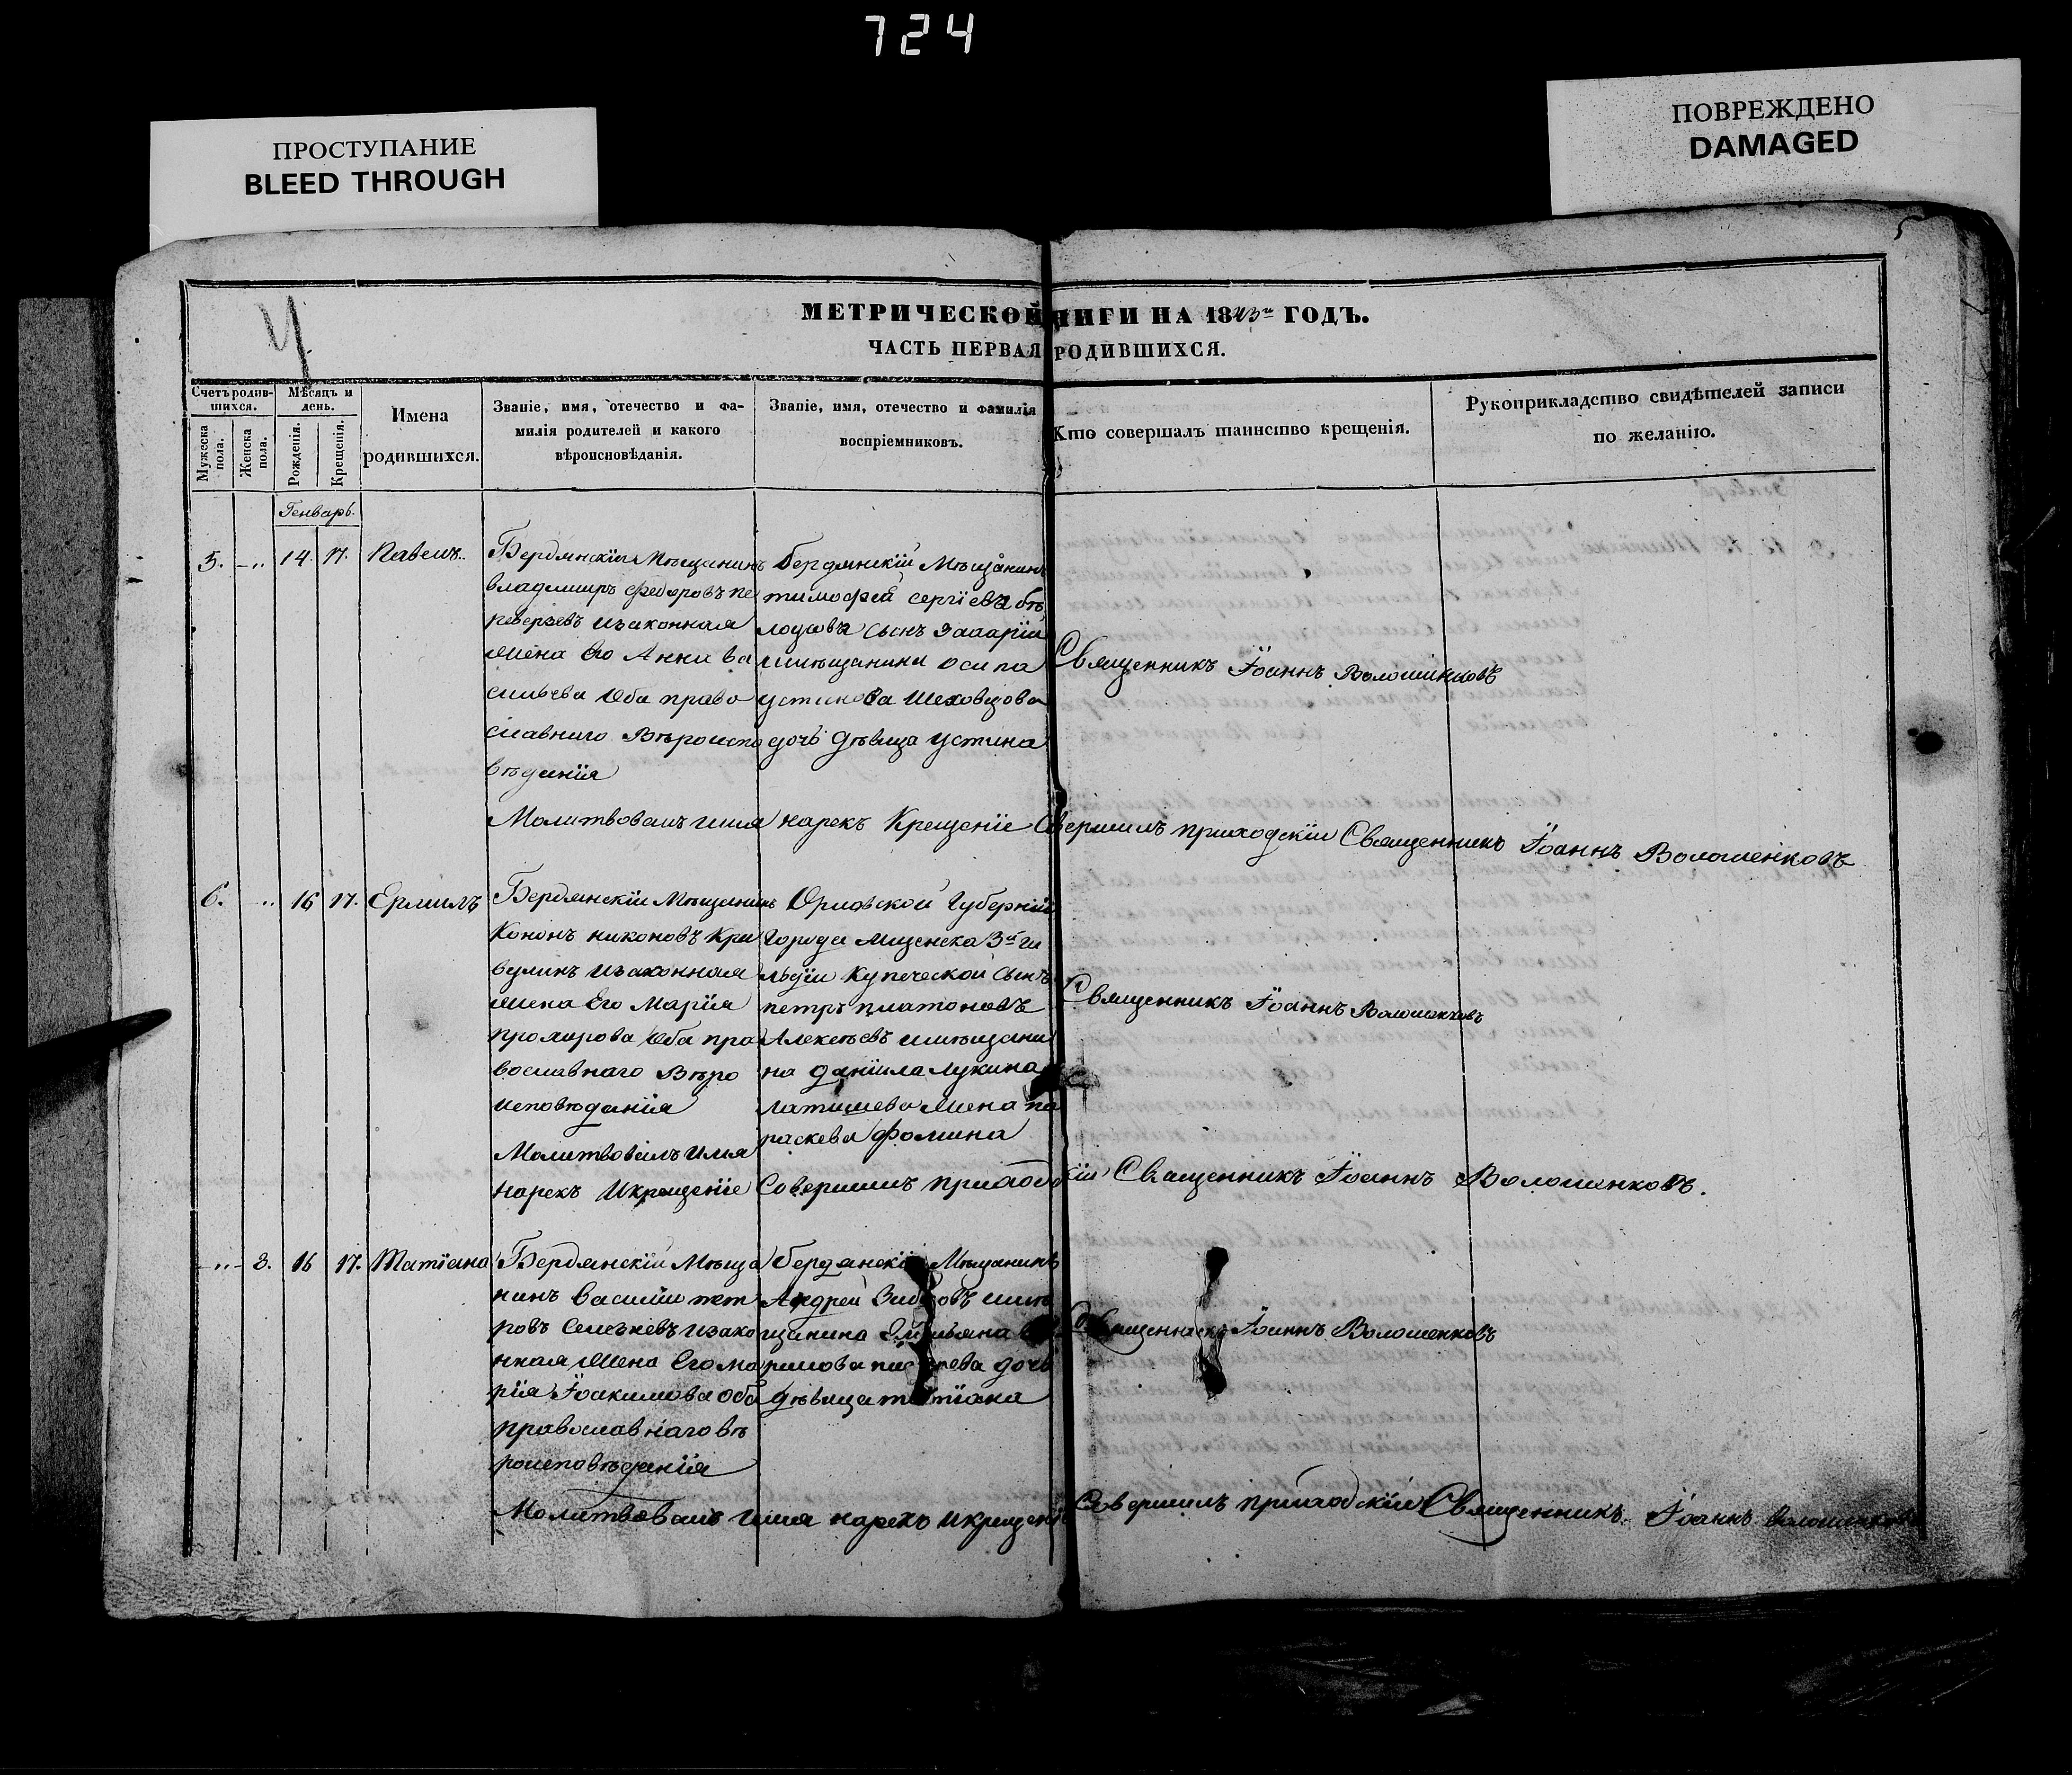 724
ПРОСТУПАНИЕ
BLEED THROUGH
ПОВРЕЖДЕНО
DAMAGED
5
МЕТРИЧЕСКОЙ НИГИ НА 1843 ГОДЪ.
ЧАСТЬ ПЕРВАЯ РОДИВШИХСЯ.
Счетъ родив-
шихся.
Мужеска пола.
Женска пола.
Мѣсяцъ и
день.
Рожденія.
Крещенія.
Имена
родившихся.
Званіе, имя, отечество и фа-
милія родителей и какого
вѣроисповѣданія.
Званіе, имя, отечество и фамилія
воспріемниковъ.
Кто совершалъ таинство крещенія.
Рукоприкладство свидѣтелей записи
по желанію.
Генварь.
5. 14. 17. Павелъ.
Бердянскій Мѣщанинъ
владимиръ федоровъ пе
реверзевъ изаконная
жена Его Анна ва
сильева Оба право
славнаго Вѣроиспо
вѣданія
бердянскій Мѣщанинъ
тимофей сергіевъ бѣ
сынъ Захарій
имѣщанина осипа
устинова Шеховцова
дочь дѣвица устина
Священникъ Іоаннъ Волошенковъ
Молитвовалъ имя нарекъ Крещеніе Совершилъ приходскій Священникъ Іоаннъ Волошенковъ
6. 16 17. Ермилъ
Бердянскій Мѣщанинъ
Кононъ никоновъ Кри
вулинъ изаконная
жена Его Марія
Оба пра
вославнаго Вѣро
исповѣданія
Орловской Губерніи
Города Мценска 3й ги
льдіи Купеческой Сынъ
петръ платоновъ
Алексѣевъ имѣщани
на даніила Лукина
латышева Жена па
раскева фомина
Священникъ Іоаннъ Волошенковъ
Молитвовалъ Имя
нарекъ Икрещеніе Совершилъ приходскій Священникъ Іоаннъ Волошенковъ.
3. 16 17. Татіана
Бердянскій Мѣща
нинъ Василій пет
ровъ Селезневъ изако
нная Жена Его ма
рія Іоакимова оба
православнаго вѣ
роисповѣданія
бердянскій Мѣщанинъ
Андрей имѣ
щанина
дочь
дѣвица татіана
Священникъ Іоаннъ Волошенковъ
Молитвовалъ имя нарекъ икрещеніе Совершилъ приходскій Священникъ Іоаннъ Волошенковъ